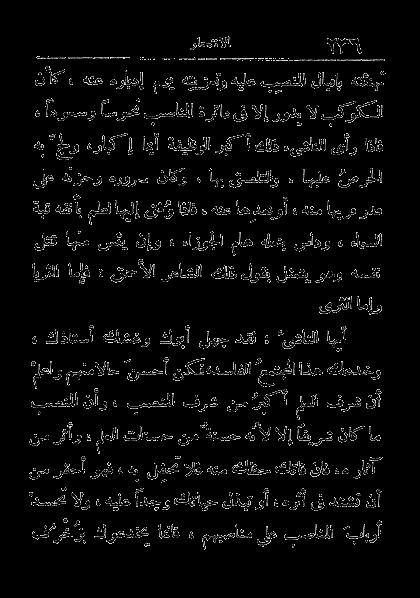 ٢٢٦ الانتحار
تهنئته بإقبال المنصب عليه وتعزيته يوم إدباره عنه ، كأن
الكوكب لا يدور إلا في دائرة المناصب نحوسا وسعودا ،
فاذا رأى الناشيء ذلك أكبر الوظيفة أيما إكبار، ولج به
الحرص عليها ، والتلصق بها ، وكان سروره وحزنه على
قدر قربها منه ، أو بعدها عنه ، فاذا وفق إليها لطم بأنفه قبة
السماء ، وداس بنعله هام الجوزاء ، وإن يئس منها قتل
نفسه وهو يتمثل بقول ذلك الشاعر الأحمق : فإما الثريا
وإما الثرى
أيها الناشيء : لقد جهل أبوك وغشك أستاذك ،
وخدعك هذا المجتمع الفاسد فكن أحسن حالا منهم واعلم
أن شرف العلم أكبر من شرف المنصب ، وأن المنصب
ما كان شريفا إلا لأنه حسنة من حسنات العلم ، وأثر من
آثاره، فان فاتك حظك منه فلا تحفل به ، فهو أحقر من
أن تشتد في أثره، أو تبذل حياتك وجدا عليه ، ولا تحسد
أرباب المناصب على مناصبهم ، فانما يخدعونك بزخرف